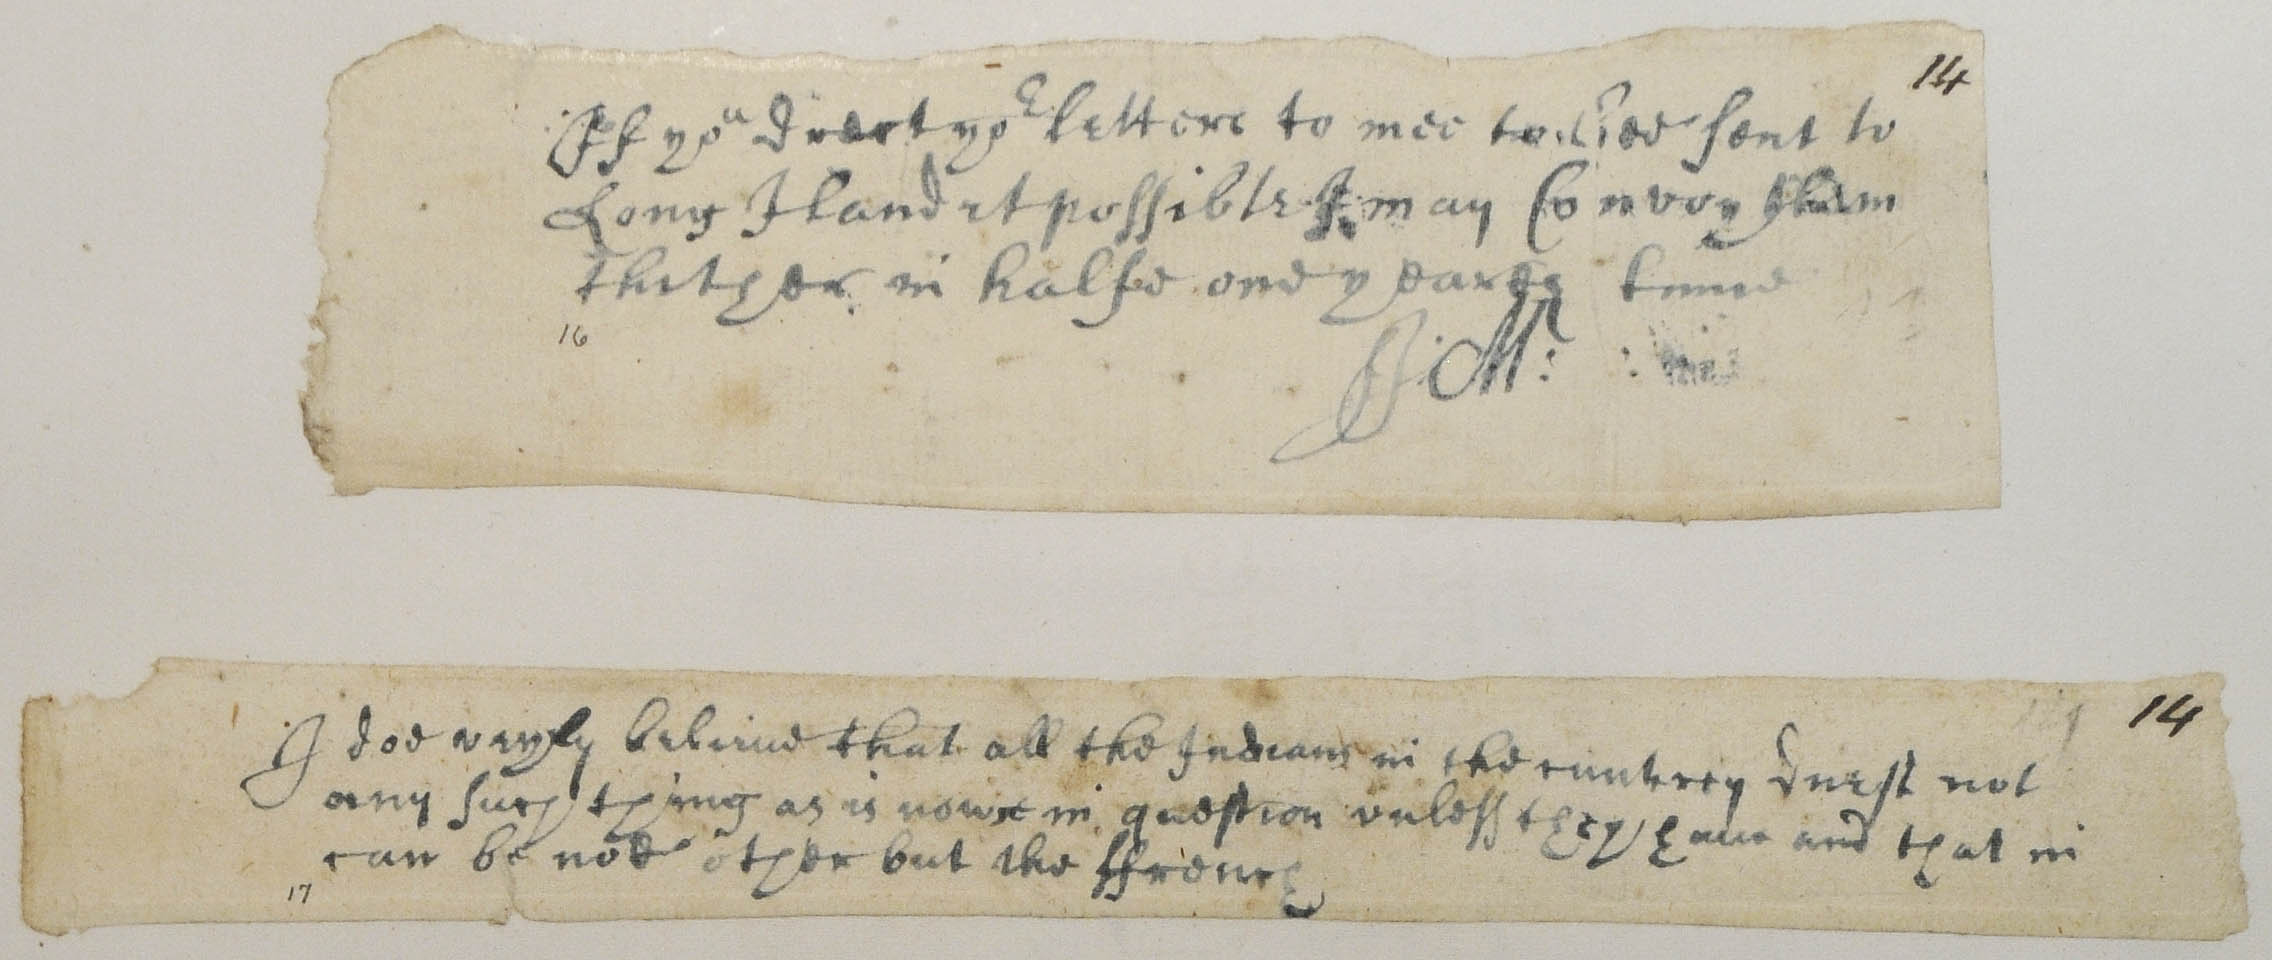 14
If yoᵘ direct yoʳ letters to mee to bee sent to
Long Iland it possible I may Convoy them
thither in halfe one yeares time
16
J: M:
14
I doe veryly beleiue that all the Indians in the cuntrey durst not
any such thing as is now in question vnless they haue and that in
can be noe other but the ffrench
17